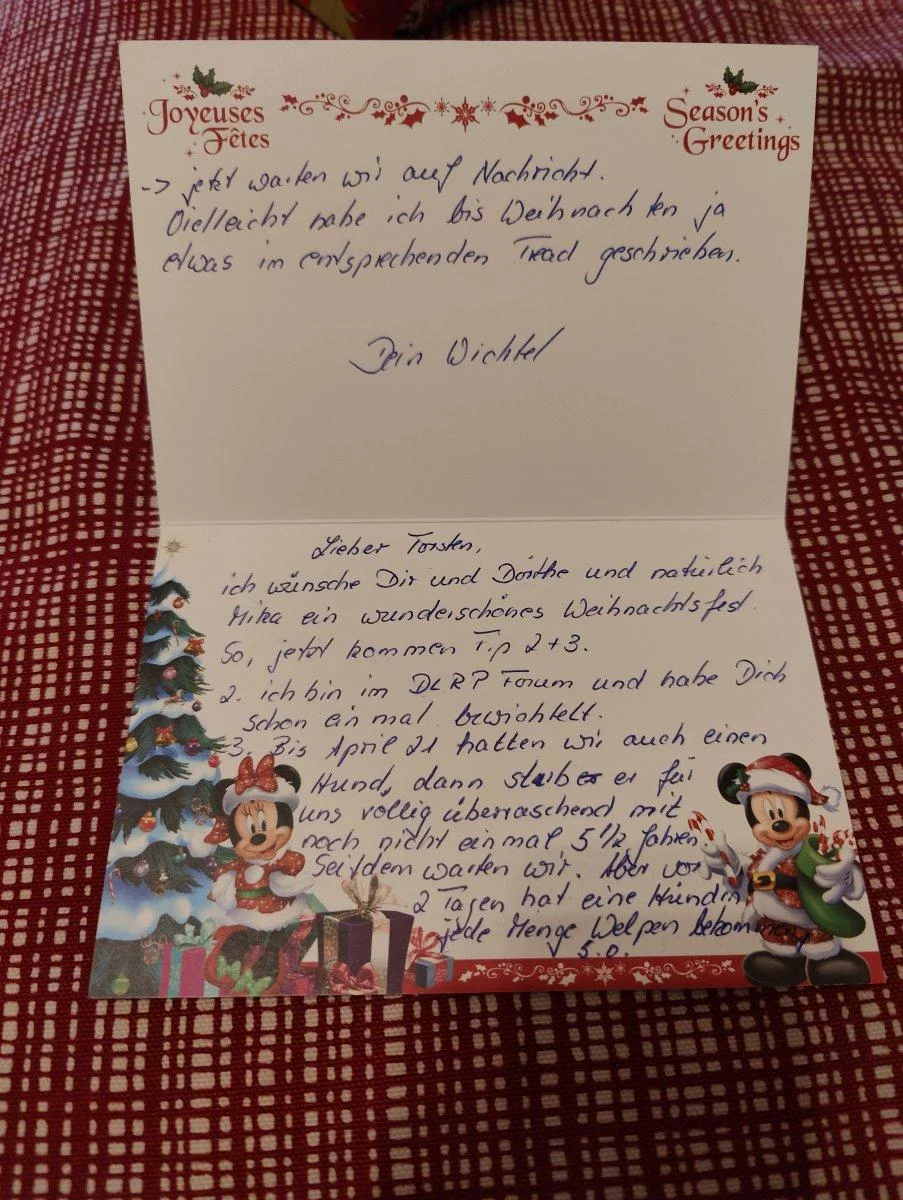 Joyeuses
Fêtes
Season's
Greetings
-> jetzt warten wir auf Nachricht.
Vielleicht habe ich bis Weihnachten ja
etwas im entsprechenden Tread geschrieben.
Dein Wichtel
Lieber Torsten,
ich wünsche Dir und Dörthe und natürlich
Mika ein wunderschönes Weihnachtsfest.
So, jetzt kommen Tip 2+3.
2. ich bin im DLRP Forum und habe Dich
schon ein mal bewichtelt.
3. Bis April 21 hatten wir auch einen
Hund, dann starb er für
uns völlig überraschend mit
noch nicht einmal 5 1/2 Jahren
Seitdem warten wir. Aber vor
2 Tagen hat eine Hündin
jede Menge Welpen bekommen,
s.o.